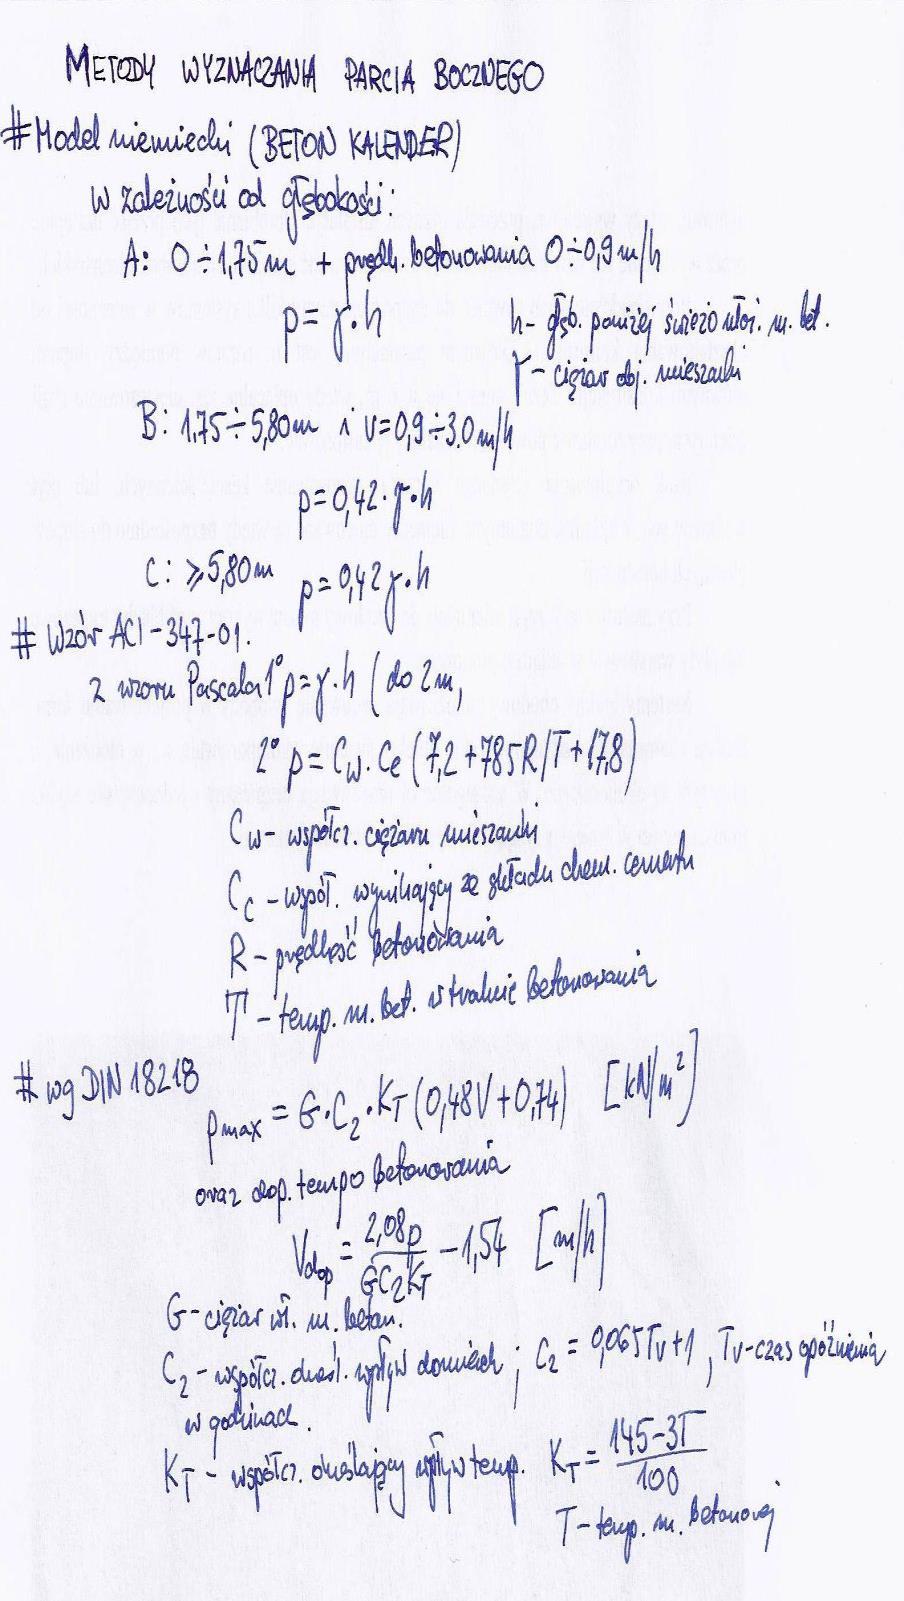 METODY WYZNACZANIA PARCIA BOCZNEGO
# Model niemiecki (BETON KALENDER)
w zależności od głębokości:
A: 0÷1,75m + prędk. betonowania 0÷0,9m/h
p=γ·h
h- głęb. poniżej świeżo ułoż. m. bet.
γ- ciężar obj. mieszanki
B: 1,75÷5,80m i v=0,9÷3.0m/h
p=0,42·γ·h
C: ⩾5,80m p=0,42γ·h
# Wzór ACI-347-01.
z wzoru Pascala 1° p=γ.h (do 2m,
2° p=Cw.Ce (7,2+785R/T+17,8)
Cw- współcz. ciężaru mieszanki
Cc - współ. wynikający ze składu chem. cementu
R - prędkość betonowania
T - temp. m. bet. w trakcie betonowania
# wg DIN 18218
pmax = G·C2·KT (0,48V+0,74) [kN/m²]
oraz dop. tempo betonowania
Vdop = 2,08p/GC2KT -1,54 [m/h]
G- ciężar wł. m. beton.
C2 - współcz. określ. wpływ domieszek ; C2 = 0,065Tv+1 , Tv-czas opóźnienia
w godzinach.
KT - współcz. określający wpływ temp. KT = 145-3T/100
T- temp. m. betonowej